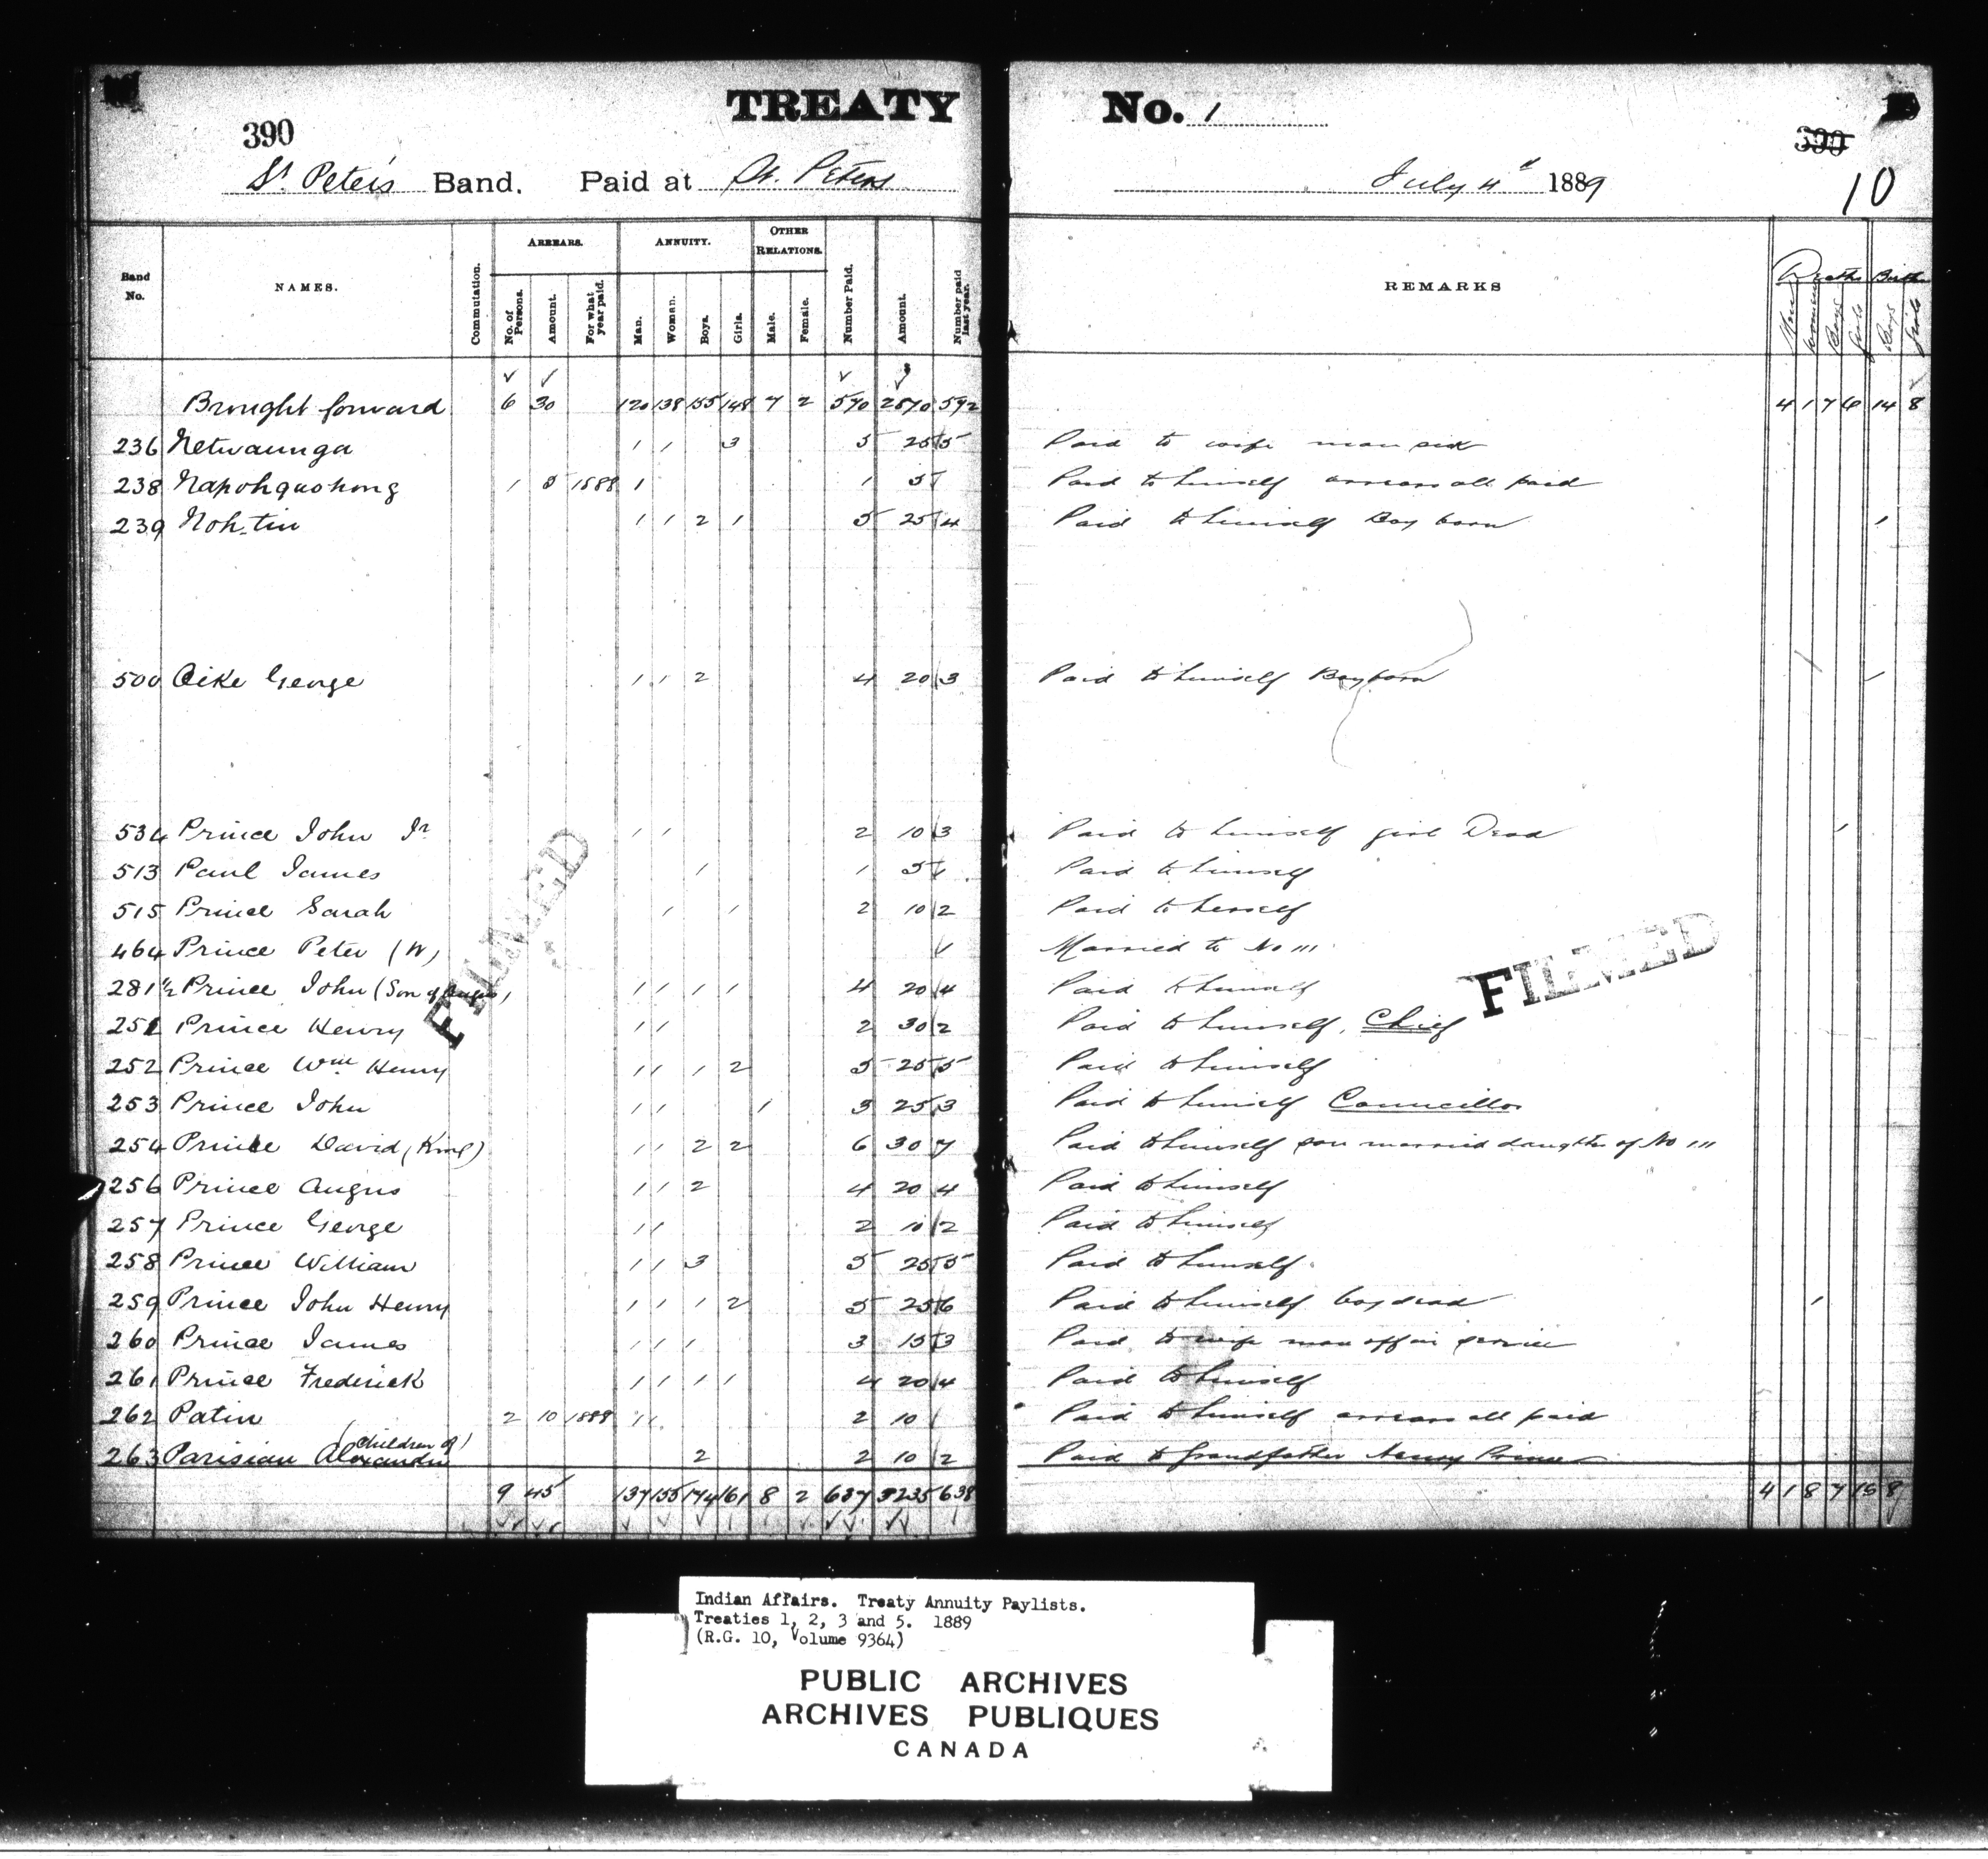 TREATY No. 1
390
390
10
St. Peter's Band. Paid at St. Peters July 4th 1889
Band No. NAMES. Commutation. ARREARS. No. of Persons. Amount. For what year paid. ANNUITY. Man. Woman. Boys. Girls. OTHER RELATIONS. Male. Female. Number Paid. Amount. Number paid last year. REMARKS Deaths Men Women Boys Girls Births Boys Girls
Brought forward 6 30 120 138 155 148 7 2 570 2870 592 4 1 7 6 14 8
236 Netwaunga 1 1 3 5 25 5 Paid to wife man sick
238 Napohquohong 1 5 1888 1 1 5 1 Paid to himself arrears all paid
239 Noh-tin 1 1 2 1 5 25 4 Paid to himself Boy born 1
500 Oike George 1 1 2 4 20 3 Paid to himself Boy born 1
534 Prince John Jr 1 1 2 10 3 Paid to himself girl Dead 1
513 Paul James 1 1 5 1 Paid to himself
515 Prince Sarah 1 1 2 10 2 Paid to herself
464 Prince Peter (W) 1 Married to No 111
281½ Prince John (Son of Angus) 1 1 1 1 4 20 4 Paid to himself
251 Prince Henry 1 1 2 30 2 Paid to himself, Chief
252 Prince Wm Henry 1 1 1 2 5 25 5 Paid to himself
253 Prince John 1 1 1 3 25 3 Paid to himself Councillor
254 Prince David (King) 1 1 2 2 6 30 7 Paid to himself son married daughter of No 111
256 Prince Angus 1 1 2 4 20 4 Paid to himself
257 Prince George 1 1 2 10 2 Paid to himself
258 Prince William 1 1 3 5 25 5 Paid to himself
259 Prince John Henry 1 1 1 2 5 25 6 Paid to himself boy dead 1
260 Prince James 1 1 1 3 15 3 Paid to wife man off in service
261 Prince Frederick 1 1 1 1 4 20 4 Paid to himself
262 Patin 2 10 1888 1 1 2 10 Paid to himself arrears all paid
263 Parisian Alexander (Children of) 2 2 10 2 Paid to Grandfather Henry Prince
9 45 137 155 174 161 8 2 637 3235 638 4 1 8 7 16 8
FILMED
FILMED
Indian Affairs. Treaty Annuity Paylists.
Treaties 1, 2, 3 and 5. 1889
(R.G. 10, Volume 9364)
PUBLIC ARCHIVES
ARCHIVES PUBLIQUES
CANADA